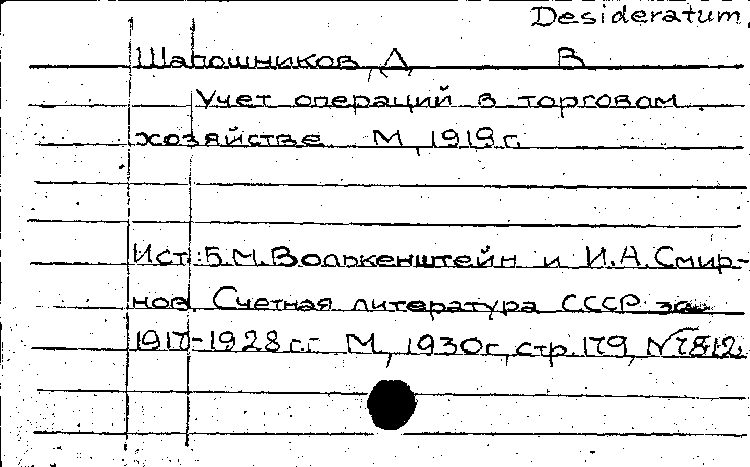 Desideratum.
Шапошников, А В
Учет операций в торговом
хозяйстве М, 1919г.
Ист.: Б.М. Волькенштейн и И.А. Смир-
нов. Счетная литература СССР за
1917-1928 г.г. М, 1930г, стр. 179, №1812.